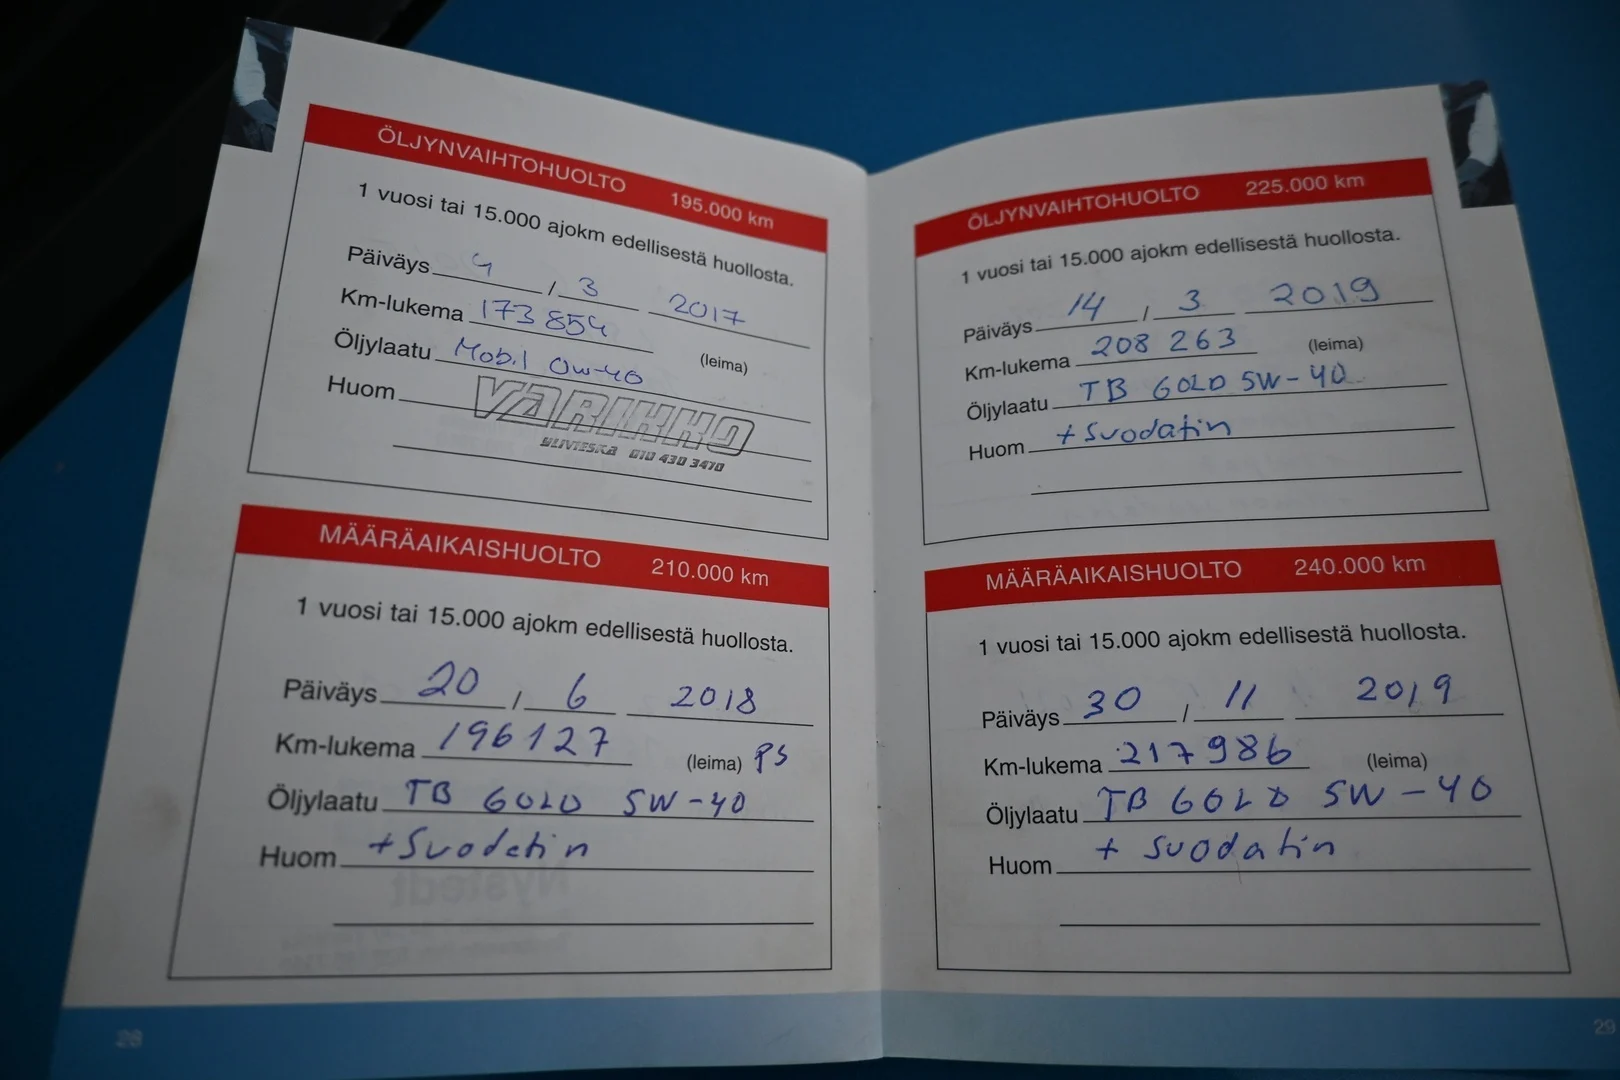 ÖLJYNVAIHTOHUOLTO 195.000 km
1 vuosi tai 15.000 ajokm edellisestä huollosta.
Päiväys 4 / 3 2017
Km-lukema 173 854
Öljylaatu Mobil 0w-40 (leima)
Huom
VARIKKO
YLIVIESKA 010 430 3470
MÄÄRÄAIKAISHUOLTO 210.000 km
1 vuosi tai 15.000 ajokm edellisestä huollosta.
Päiväys 20 / 6 2018
Km-lukema 196127 (leima) PS
Öljylaatu TB GOLD 5W-40
Huom + Suodatin
28
ÖLJYNVAIHTOHUOLTO 225.000 km
1 vuosi tai 15.000 ajokm edellisestä huollosta.
Päiväys 14 / 3 2019
Km-lukema 208 263 (leima)
Öljylaatu TB GOLD 5W-40
Huom + Suodatin
MÄÄRÄAIKAISHUOLTO 240.000 km
1 vuosi tai 15.000 ajokm edellisestä huollosta.
Päiväys 30 / 11 2019
Km-lukema 217986 (leima)
Öljylaatu TB GOLD 5W-40
Huom + Suodatin
29